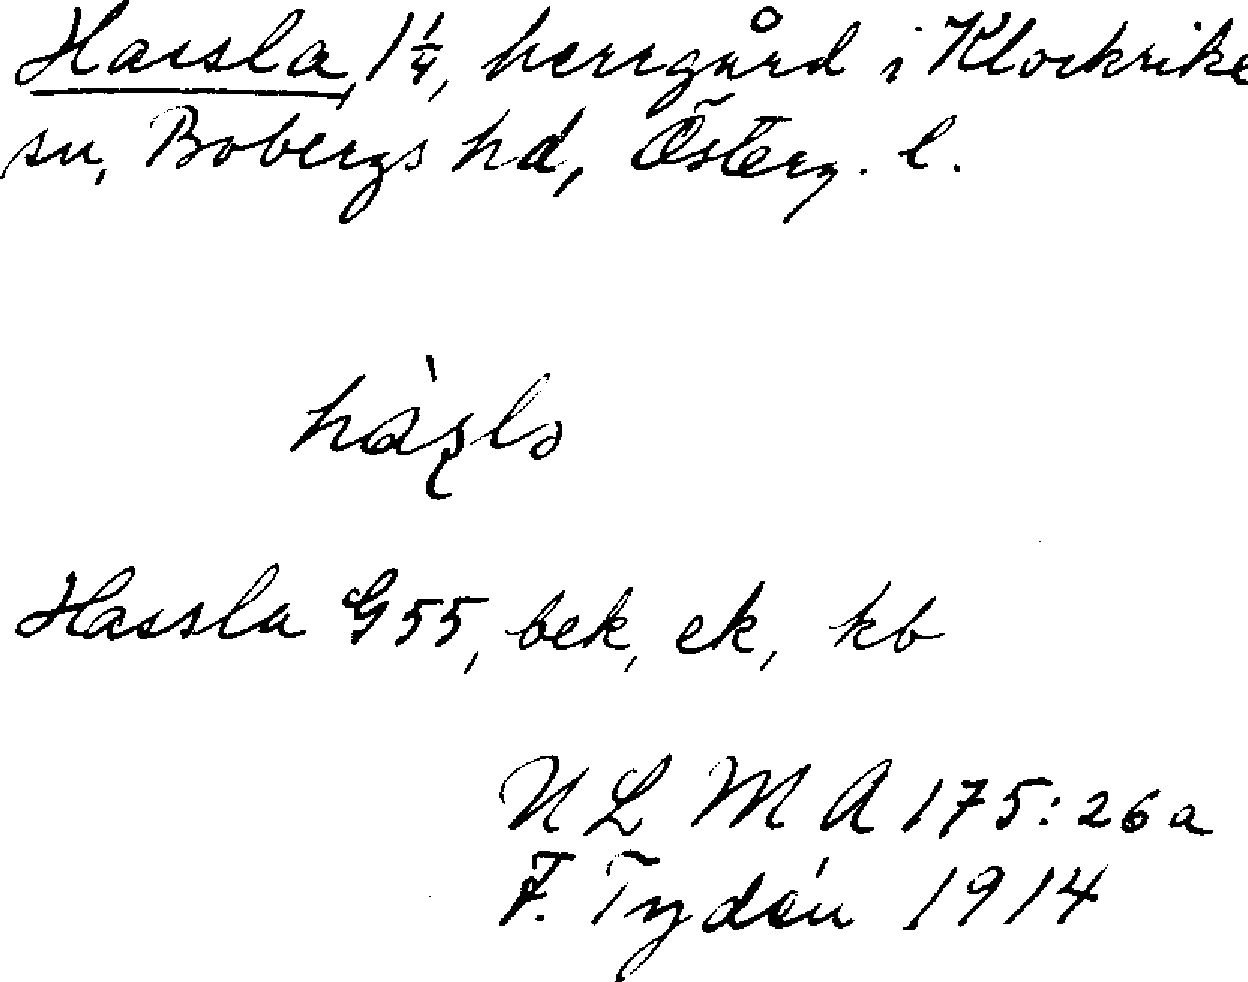 Hassla, 1¼, herrgård i Klockrike
sn, Bobergs hd, Österg. l.
Hassla G55, bek, ek, kb
ULMA 175:26a
F. Tydén 1914